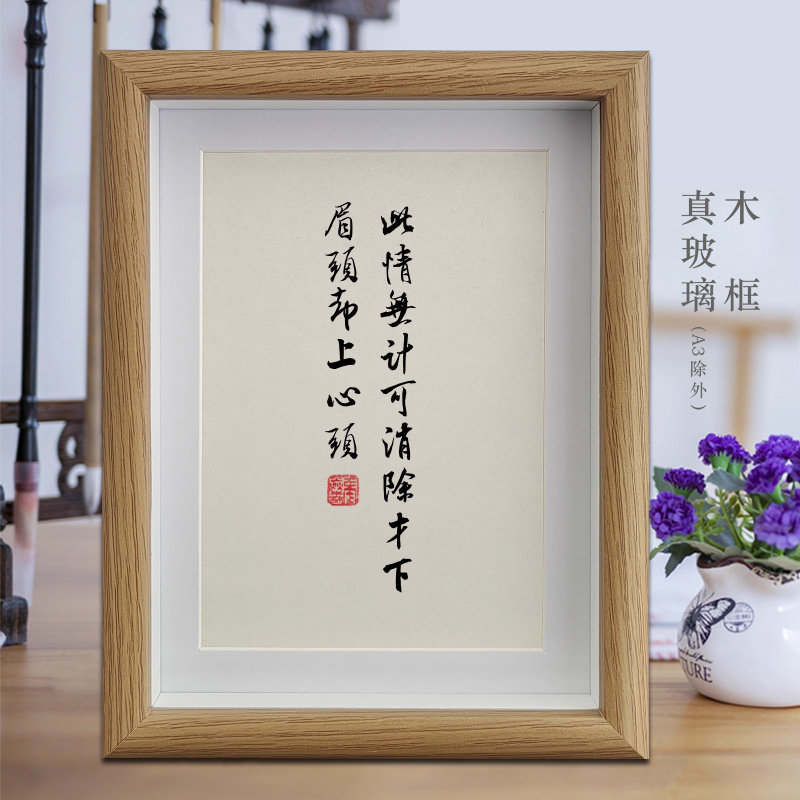 此情無计可消除才下
眉頭却上心頭
木框
真玻璃(A3除外)